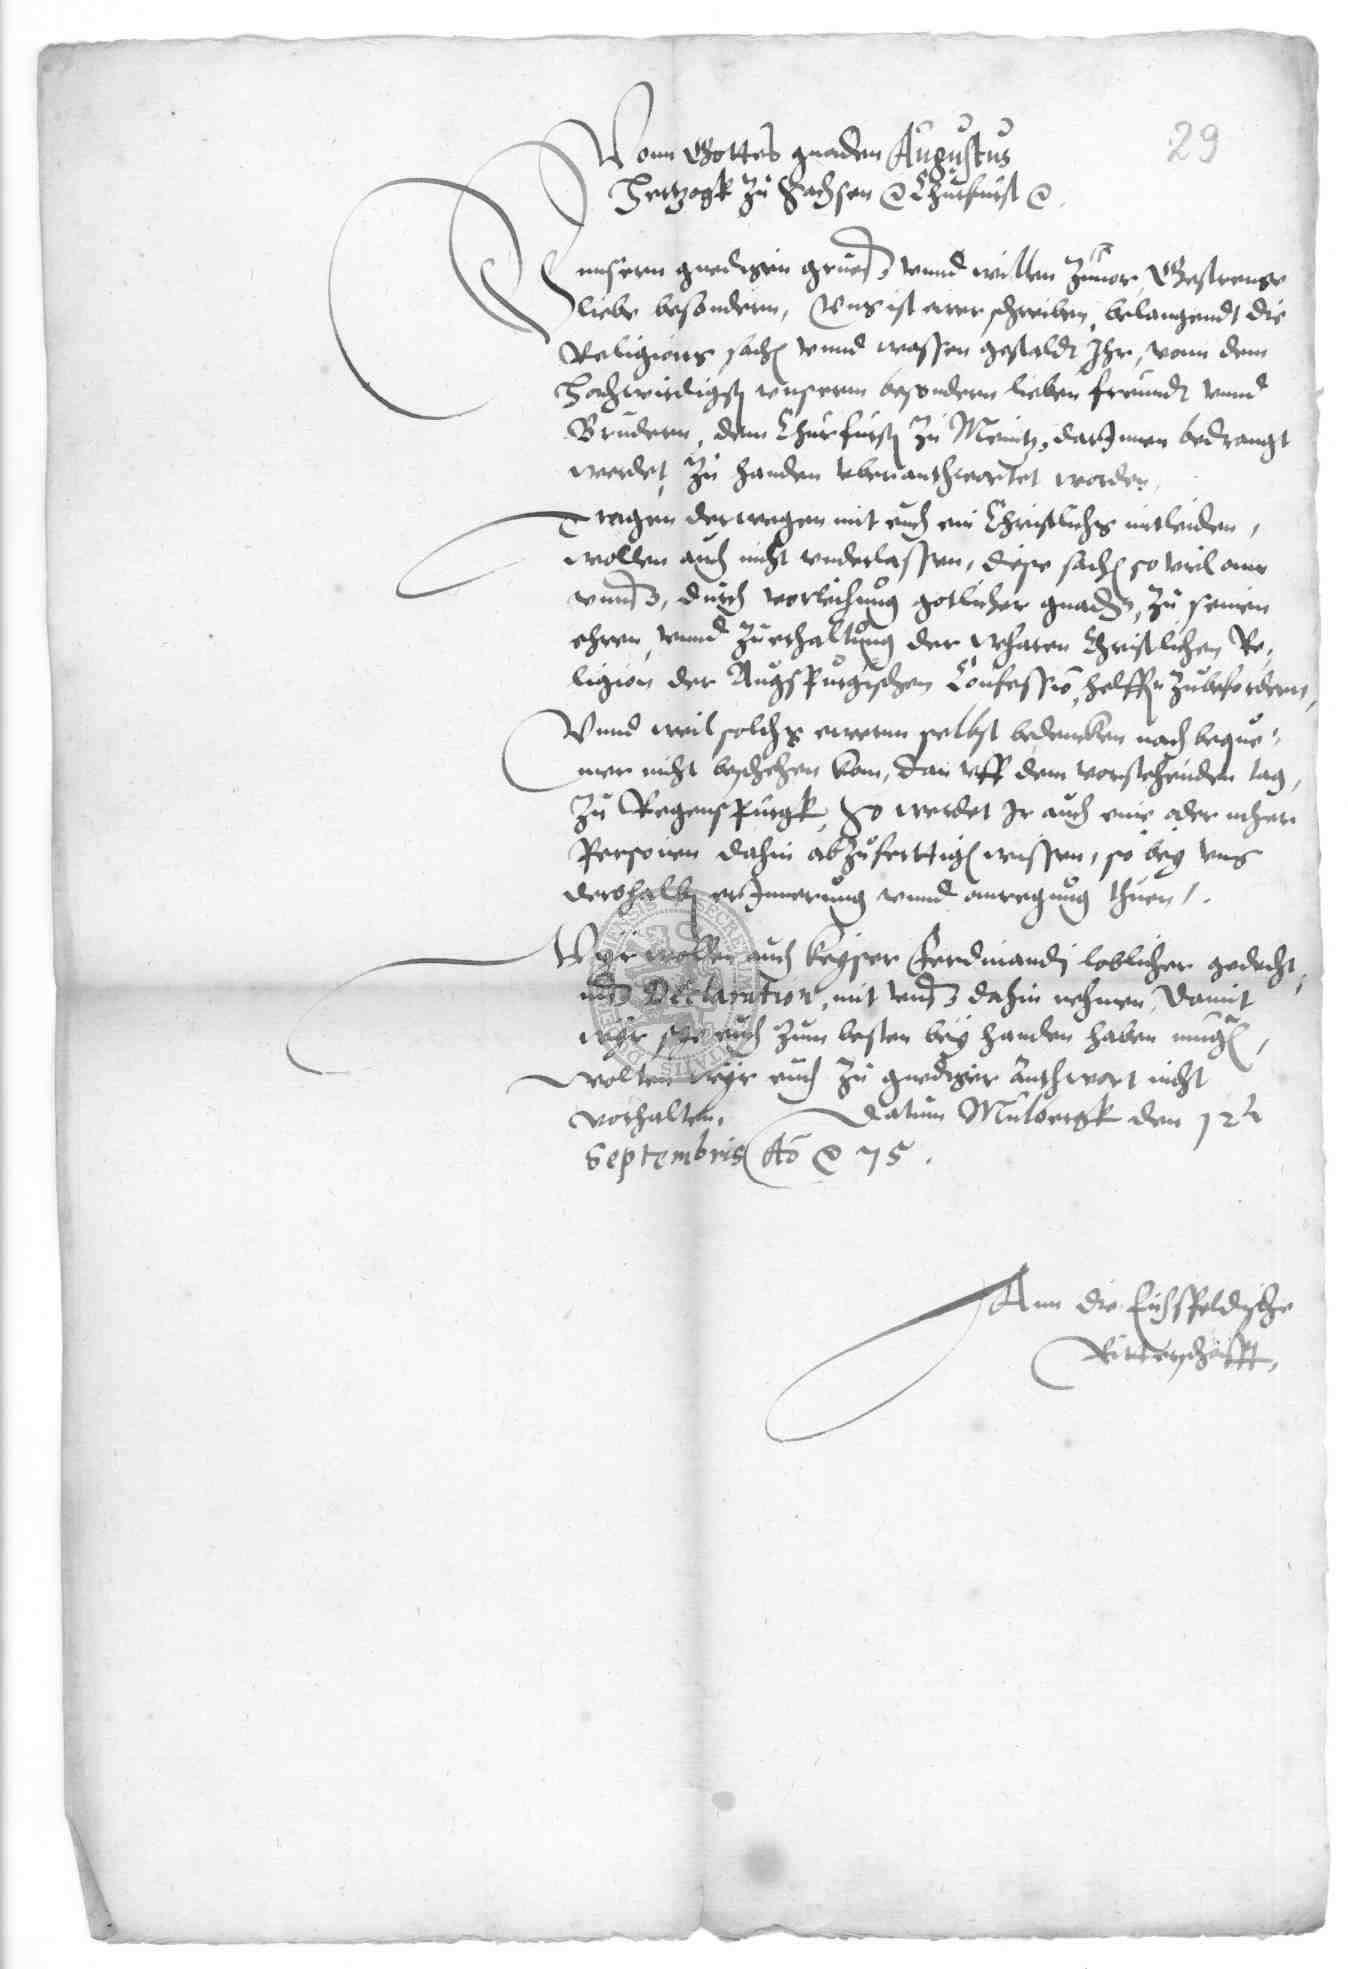 29
Vonn Gottes gnaden Augustus
Hertzogk zu Sachsen etc Churfurst etc.
unsern gnedigen grues vnnd willen zuuor, Gestrenge
liebe besondern, Vns ist ewer schreiben, belangendt die
Religions sach vnnd wassen gestaldt Ihr, vonn dem
Hochwirdigst vnserm besondern lieben freundt vnnd
Brudern, dem Churfurst zu Meintz, darInnen bedrangt
werdet, zu handen vberanthwortet worden,
Tragen derwegen mit euch ein Christlichs mitleiden,
wollen auch nicht vnderlassen, diese sach so viel ann
vnns, durch vorleihung gotlicher gnaden, zu seinen
ehren, vnnd zu erhaltung der wharen Christlichen Re,
ligion der Augspurgischen Confession, helffen zubefordern,
Vnnd weil solchs ewerm selbst bedencken nach beque,
mer nicht beschehen kan, dan vff dem vorstehenden tag,
zu Regenspurgk, So werdet Ir auch eine oder mher
Personen dahin abzufertigen wissen, so bey vns
derohalben erInnerung vnnd anregung thuen/.
Wyr wollen auch Keyser Ferdinandj loblicher gedecht,
nus Declaration, mit vns dahin nehmen, Damit
wyr sye euch zum besten bey handen haben mugen,
wolten wyr euch zu gnediger anthwort nicht
vorhalten, Datum Mulbergk den 12t
Septembris Ao etc 75.
Ann die Eichsfeldische
Ritterschafft,